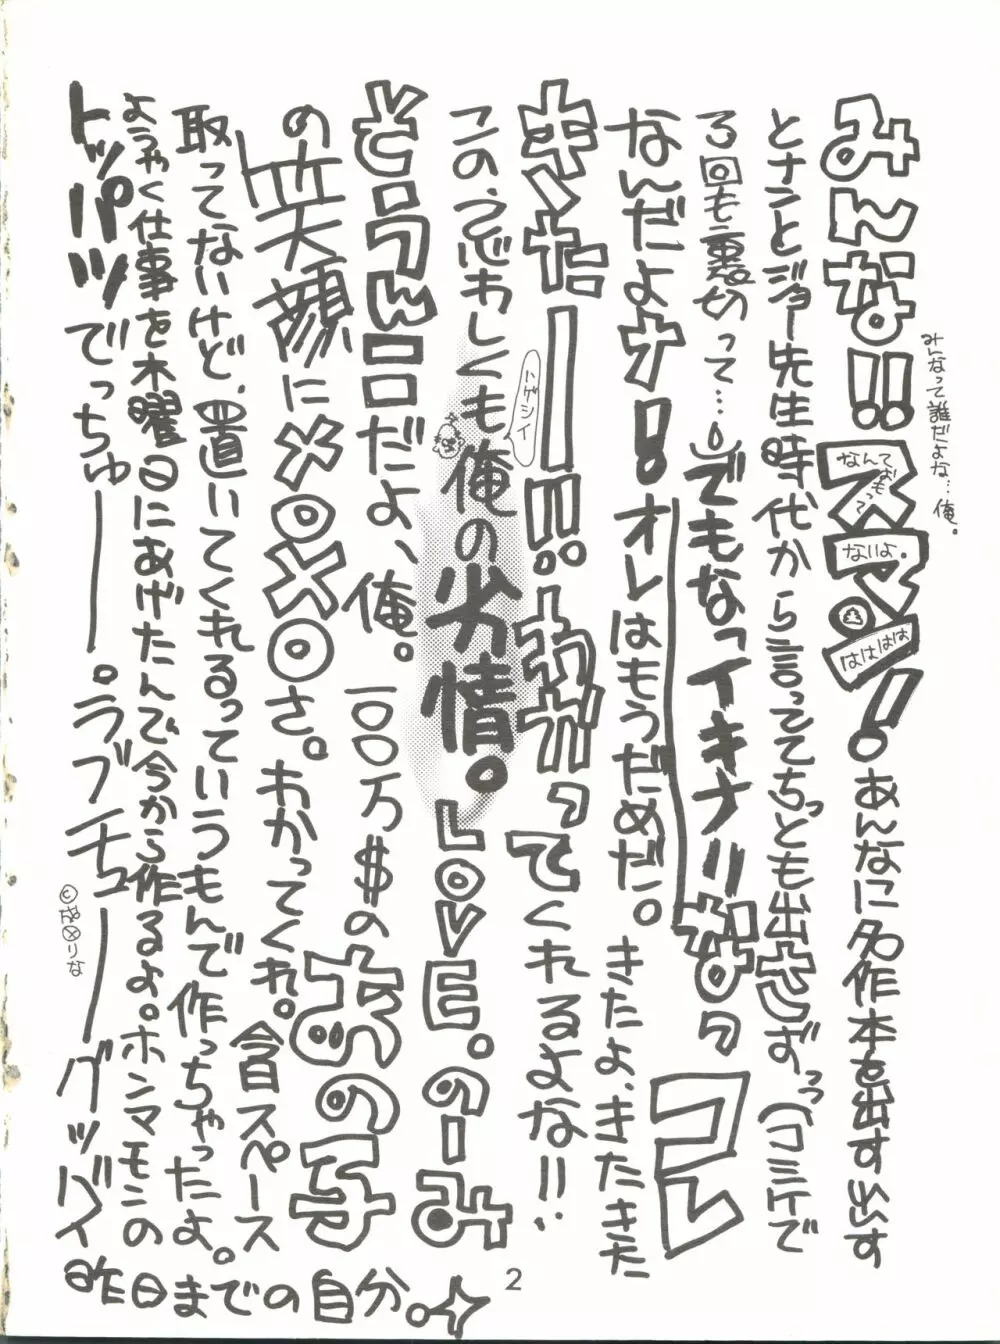 みんな!!スマン!あんなに名作本を出す出す
なんて
おもって
ないよ。
はははは
みんなって誰だよな…俺。
とナラとジョー先生時代から言っててちっとも出さずっっ(コミケで
る回も裏切って…。でもなっイキナリなっコレ
なんだよナ!オレはもうだめだ。きたよ、きたきた
キターーー!!わかってくれるよな!!
ハゲシイ
この、うぶわしくも俺の劣情。LOVE。のーみ
どううんこだよ、俺。一〇〇万$のあの子
の笑顔にメロメロさ。わかってくれ。今日スペース
取ってないけど、置いてくれるっていうもんで作っちゃったよ。
ようやく仕事を木曜日にあげたんで今から作るよ。ホンマモンの
トッパツでっちゅーー。ラブチューーグッバイ
昨日までの自分。
2